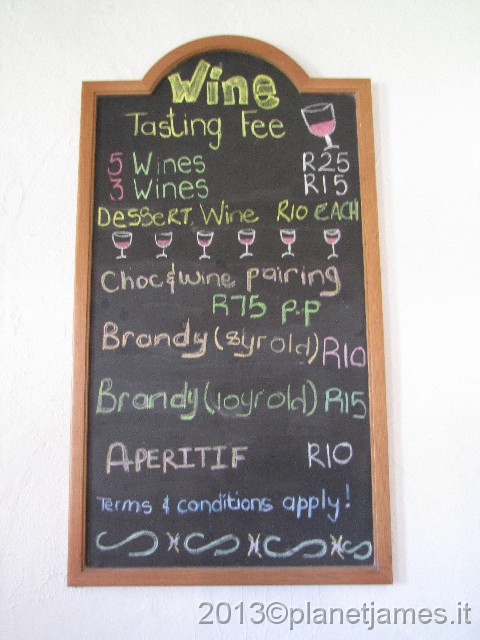 Wine
Tasting Fee
5 Wines R25
3 Wines R15
DESSERT Wine R10 EACH
Choc & wine pairing
R75 p.p
Brandy (8yr old) R10
Brandy (10yr old) R15
APERITIF R10
Terms & conditions apply!
2013©planetjames.it